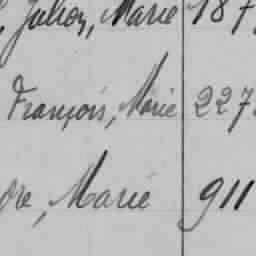 Julien, Marie 187
François, Marie 227
ore, Marie 911